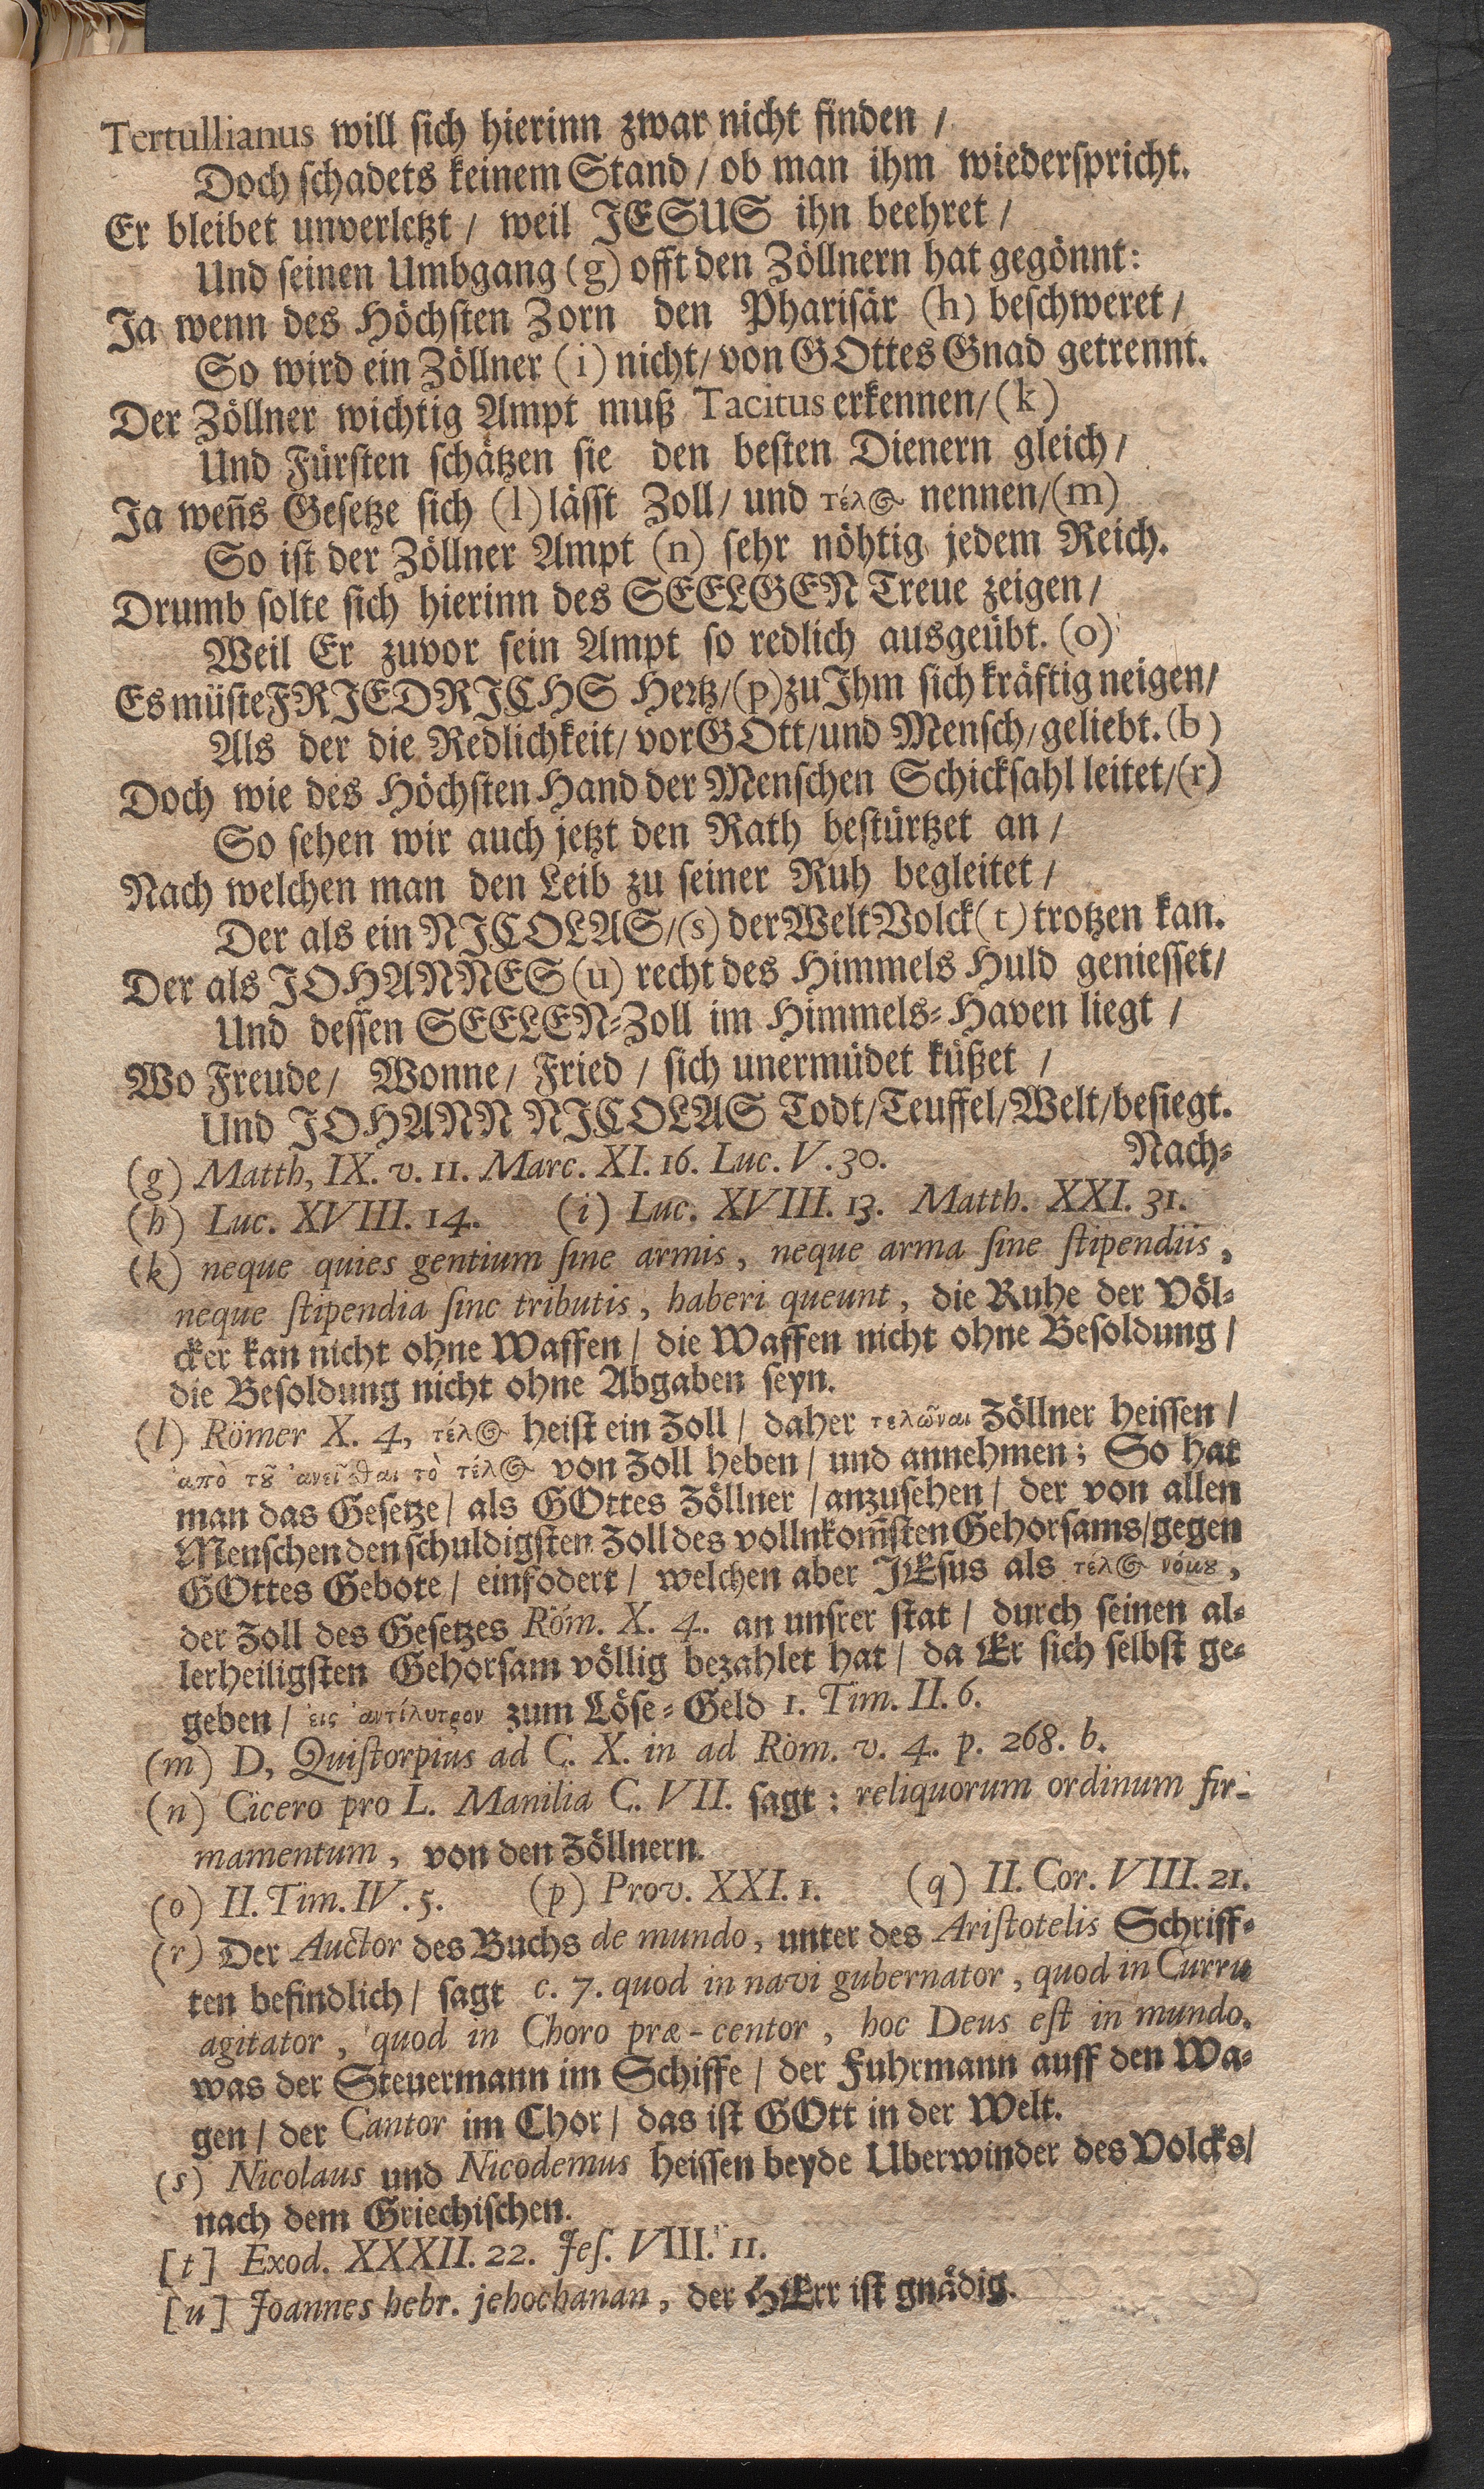 Tertullianus will ſich hierinn zwar nicht finden /
Doch ſchadets keinem Stand / ob man ihm wiederſpricht.
Er bleibet unverletzt / weil JESUS ihn beehret /
Und ſeinen Umbgang (g) offt den Zöllnern hat gegönnt:
Ja wenn des Höchſten Zorn den Phariſär (h) beſchweret /
So wird ein Zöllner (i) nicht / von GOttes Gnad getrennt.
Der Zöllner wichtig Ampt muß Tacitus erkennen / (k)
Und Fürſten ſchätzen ſie den beſten Dienern gleich /
Ja weñs Geſetze ſich (l) läſſt Zoll / und τέλ⊕ nennen / (m)
So iſt der Zöllner Ampt (n) ſehr nöhtig jedem Reich.
Drumb ſolte ſich hierinn des SEELGEN Treue zeigen /
Weil Er zuvor ſein Ampt ſo redlich ausgeübt. (o)
Es müſte FRIEDRICHS Hertz / (p) zu Ihm ſich kräftig neigen /
Als der die Redlichkeit / vor GOtt / und Menſch / geliebt. (b)
Doch wie des Höchſten Hand der Menſchen Schickſahl leitet / (r)
So ſehen wir auch jetzt den Rath beſtürtzet an /
Nach welchen man den Leib zu ſeiner Ruh begleitet /
Der als ein NICOLAS / (s) der Welt Volck (t) trotzen kan.
Der als JOHANNES (u) recht des Himmels Huld genieſſet /
Und deſſen SEELEN-Zoll im Himmels-Haven liegt /
Wo Freude / Wonne / Fried / ſich unermüdet küßet /
Und JOHANN NICOLAS Todt / Teuffel / Welt / beſiegt.
Nach-
(g) Matth, IX. v. 11. Marc. XI. 16. Luc. V. 30.
(h) Luc. XVIII. 14. (i) Luc. XVIII. 13. Matth. XXI. 31.
(k) neque quies gentium ſine armis, neque arma ſine ſtipendiis,
neque ſtipendia ſine tributis, haberi queunt, die Ruhe der Völ-
cker kan nicht ohne Waffen / die Waffen nicht ohne Beſoldung /
die Beſoldung nicht ohne Abgaben ſeyn.
(l) Römer X. 4, τέλ⊕ heiſt ein Zoll / daher τελῶναι Zöllner heiſſen /
ἀπὸ τȣ͂ ἀνεῖϑαι τὸ τέλ⊕ von Zoll heben / und annehmen; So hat
man das Geſetze / als GOttes Zöllner / anzuſehen / der von allen
Menſchen den ſchuldigſten Zoll des vollnkom̃ſten Gehorſams / gegen
GOttes Gebote / einfodert / welchen aber JEſus als τέλ⊕ νόμȣ,
der Zoll des Geſetzes Röm. X. 4. an unſrer ſtat / durch ſeinen al-
lerheiligſten Gehorſam völlig bezahlet hat / da Er ſich ſelbſt ge-
geben / ἐις ἀντίλυτρον zum Löſe-Geld 1. Tim. II. 6.
(m) D, Quiſtorpius ad C. X. in ad Röm. v. 4. p. 268. b.
(n) Cicero pro L. Manilia C. VII. ſagt: reliquorum ordinum fir-
mamentum, von den Zöllnern.
(o) II. Tim. IV. 5. (p) Prov. XXI. 1. (q) II. Cor. VIII. 21.
(r) Der Auctor des Buchs de mundo, unter des Ariſtotelis Schriff-
ten befindlich / ſagt c. 7. quod in navi gubernator, quod in Curru
agitator, quod in Choro præ-centor, hoc Deus eſt in mundo,
was der Steuermann im Schiffe / der Fuhrmann auff den Wa-
gen / der Cantor im Chor / das iſt GOtt in der Welt.
(s) Nicolaus und Nicodemus heiſſen beyde Uberwinder des Volcks /
nach dem Griechiſchen.
[t] Exod. XXXII. 22. Jeſ. VIII. 11.
[u] Joannes hebr. jehochanan, der HErr iſt gnädig.